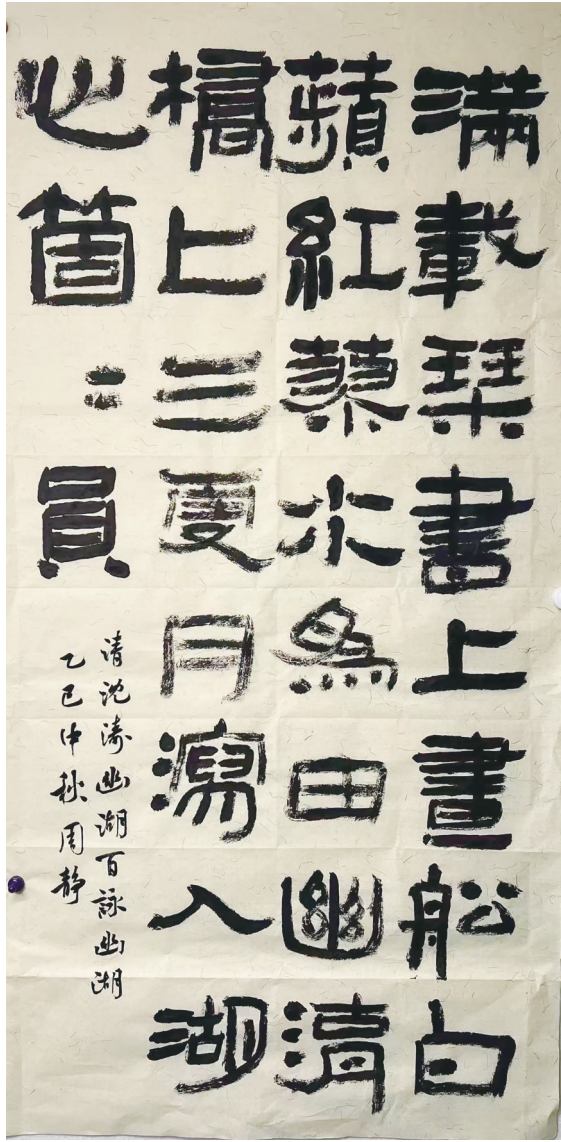 滿載琹書上畫舩白
蘋紅蓼水為田幽清
橋上三更月瀉入湖
心箇〻員
清沈濤幽湖百詠幽湖
乙巳中秋周靜